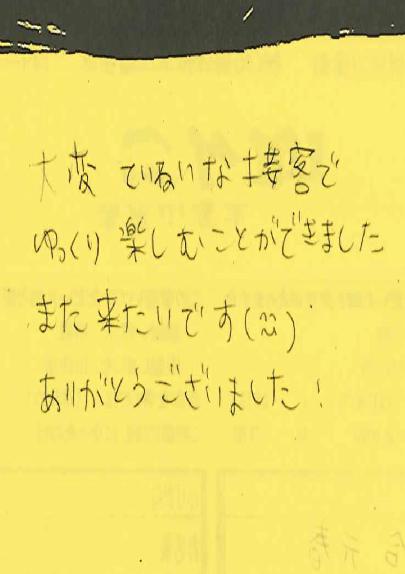 大変 ていねいな接客で
ゆっくり 楽しむことができました
また来たいです(^^)
ありがとうございました!